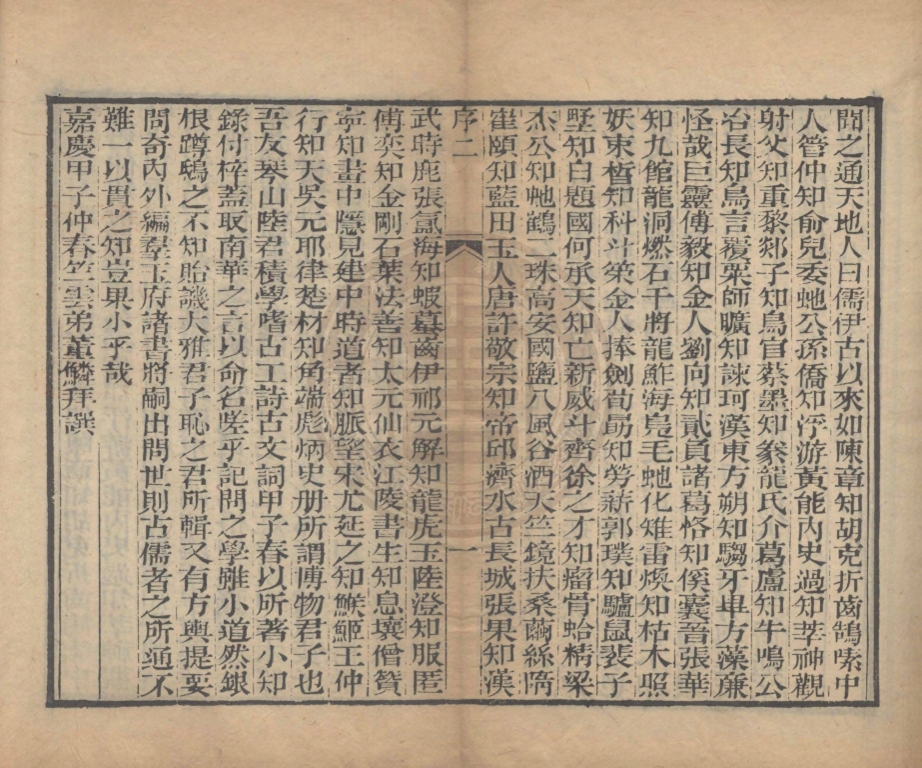 聞之通天地人曰儒伊古以來如陳章知胡克折齒鵠嗉中
人管仲知俞兒委虵公孫僑知浮游黃能內史過知莘神觀
射父知重黎郯子知鳥官蔡墨知豢龍氏介葛盧知牛鳴公
冶長知鳥言覆粟師曠知諫珂漢東方朔知騶牙畢方藻廉
怪哉巨靈傅毅知金人劉向知貳負諸葛恪知傒囊晉張華
知九館龍洞燃石干將龍鮓海鳧毛虵化雉雷煥知枯木照
妖束晳知科斗筞金人捧劍荀勗知勞薪郭璞知驢鼠裴子
墅知白題國何承天知亡新威斗齊徐之才知瘤骨蛤精梁
杰公知虵鶴二珠高安國鹽八風谷洒天竺鏡扶桑繭絲隋
崔頤知藍田玉人唐許敬宗知帝邱濟水古長城張果知漢
序二 一
武時鹿張氳海知蝦蟇齒伊祁元解知龍虎玉陸澄知服匿
傅奕知金剛石葉法善知太元仙衣江陵書生知息壤僧贊
寧知畫中隱見建中時道者知脈望宋尤延之知鯸䱌王仲
行知天吳元耶律楚材知角端彪炳史册所謂博物君子也
吾友琴山陸君積學嗜古工詩古文詞甲子春以所著小知
錄付梓蓋取南華之言以命名嗟乎記問之學雖小道然銀
根蹲鴟之不知貽譏大雅君子恥之君所輯又有方輿提要
問奇內外編羣玉府諸書將嗣出問世則古儒者之所通不
難一以貫之知豈果小乎哉
嘉慶甲子仲春竺雲弟董鱗拜譔